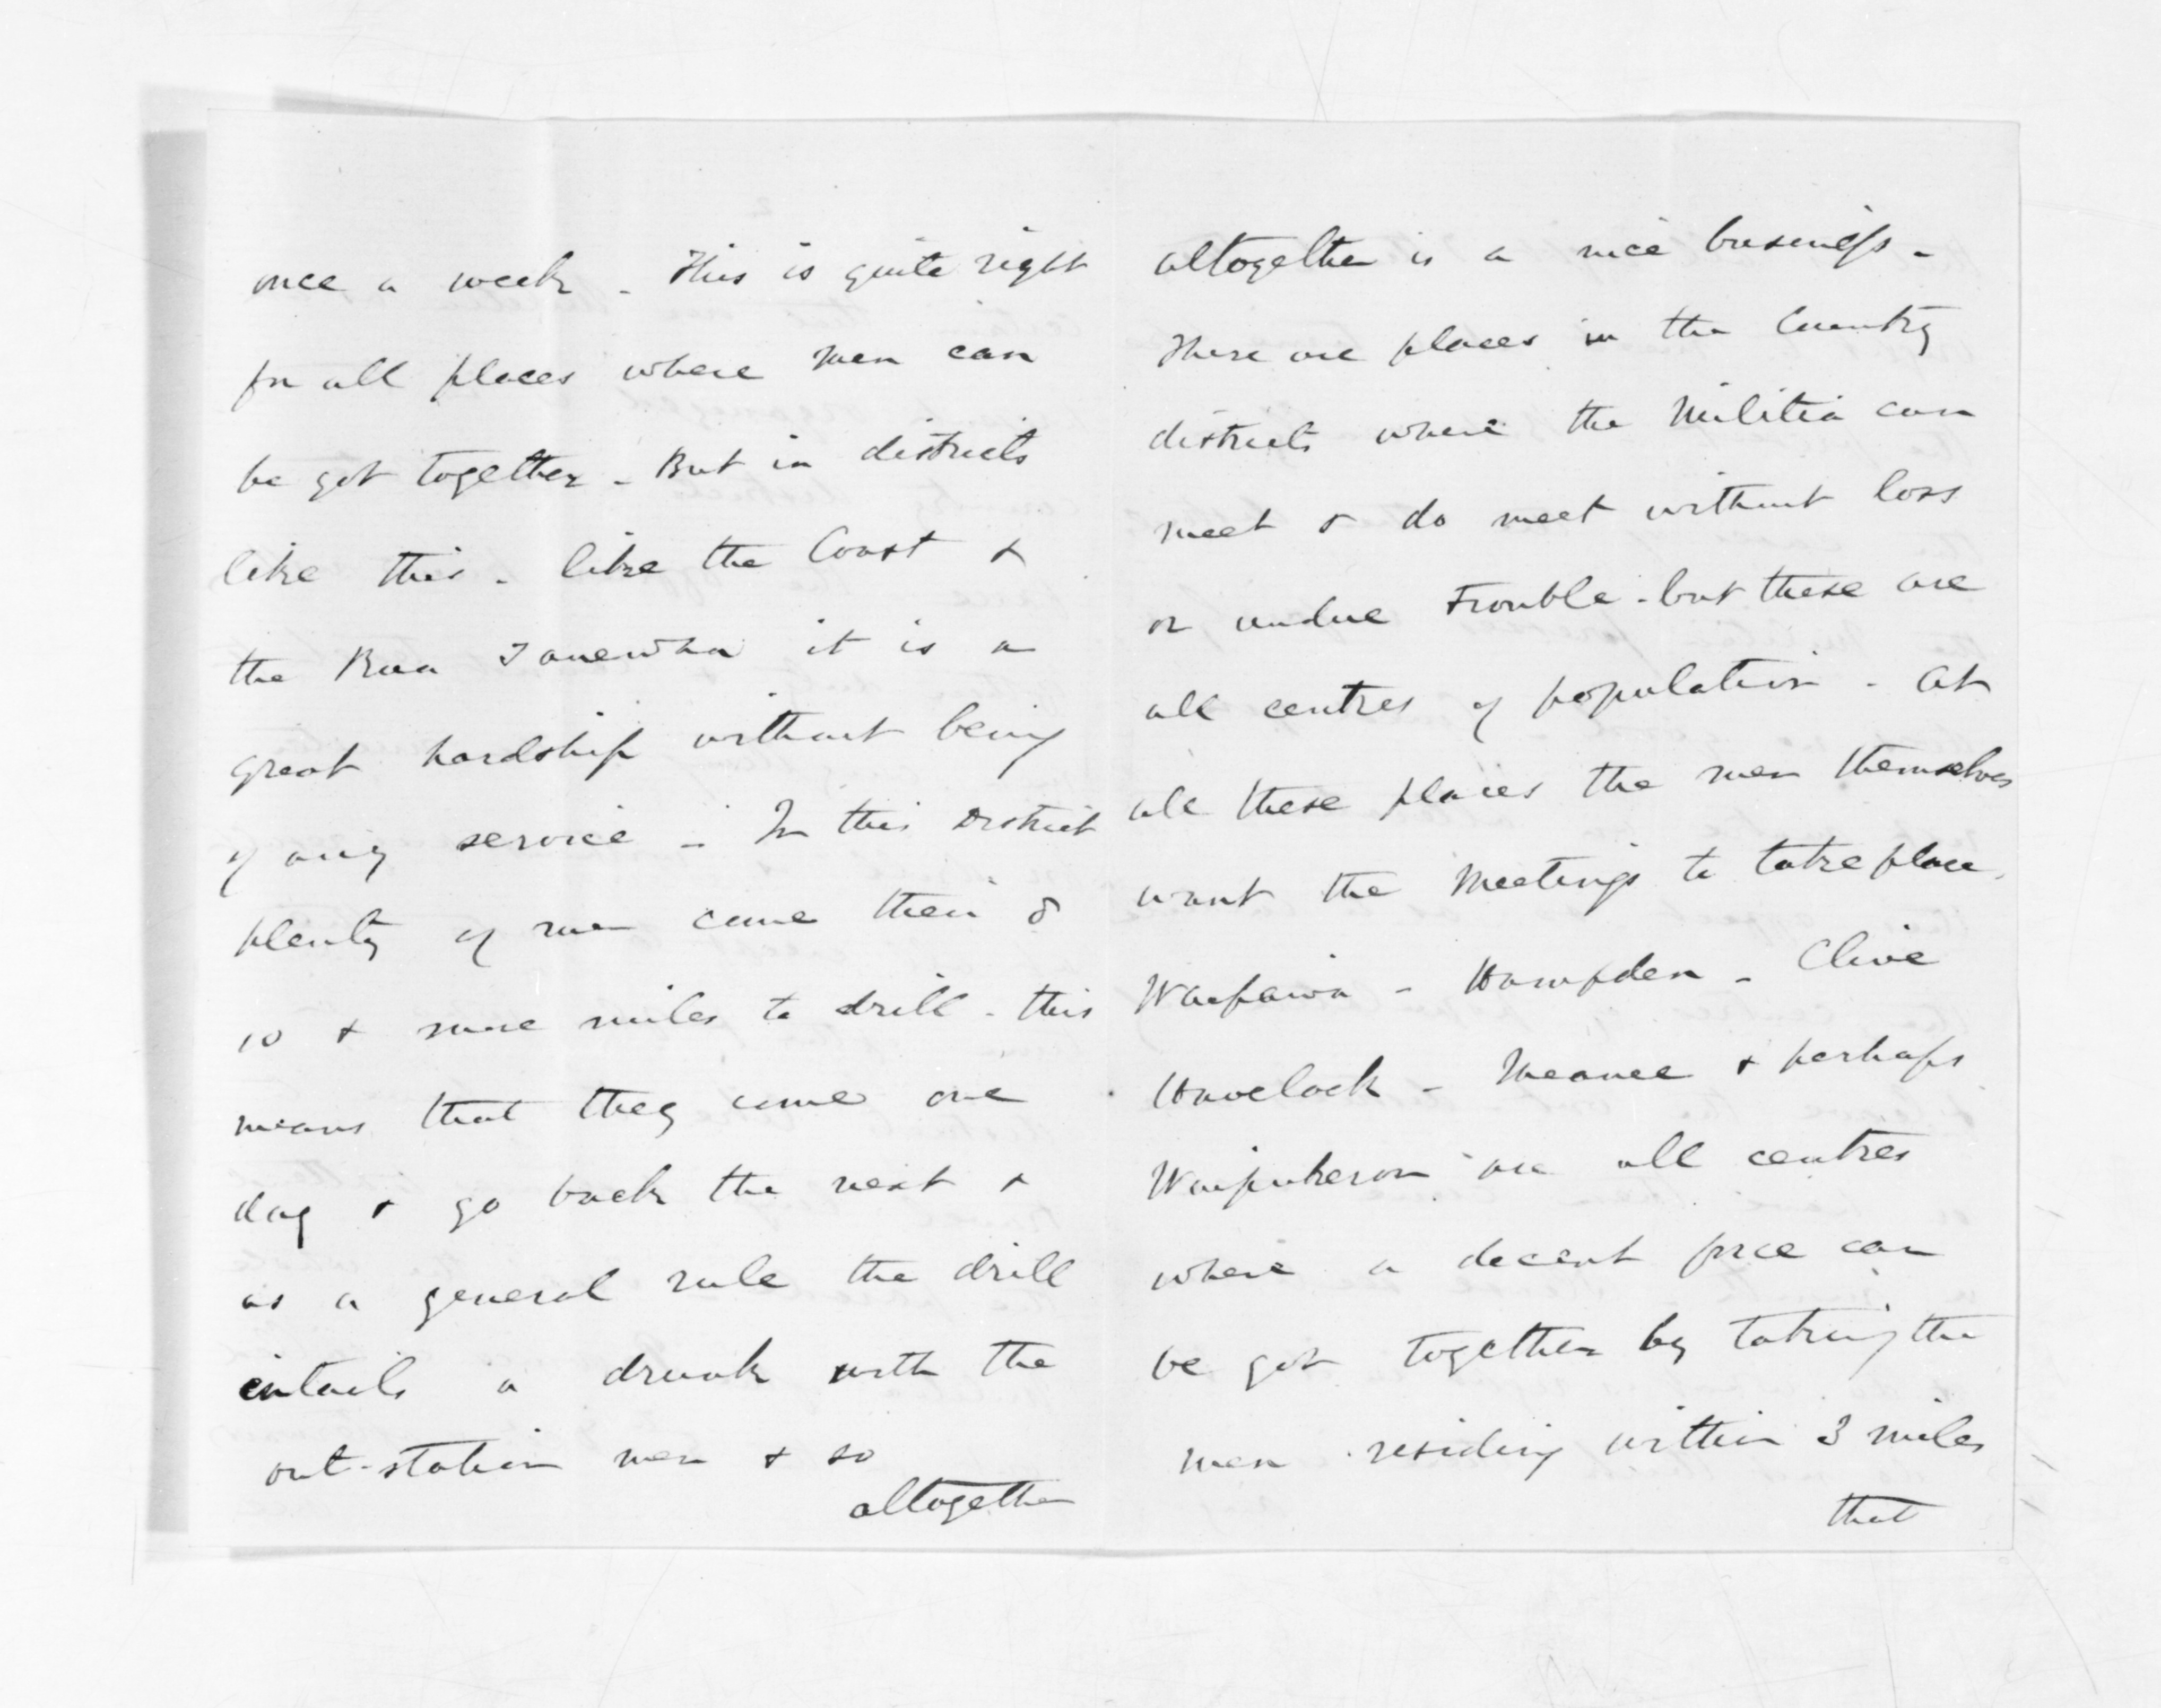 once a week - This is quite right
for all places where men can
be got together - But in districts
like this - like the Coast &
the Rua Tanewha it is a
great hardship without being
of any service - In this District
plenty of men come their 8
10 & more miles to drill - this
means that they come one
day & go back the next &
as a general rule the drill
entails a drunk with the
out-station men & so
altogether
altogether is a nice business -
There are places in the Country
districts where the Militia can
meet & do meet without loss
or undue trouble - but these are
all centres of population - At
all these places the men themselves
want the Meetings to take place.
Waipawa - Hampden - Clive
Havelock - Meanee & perhaps
Waipukerau are all centres
where a decent force can
be got together by taking the
men residing within 3 miles
that